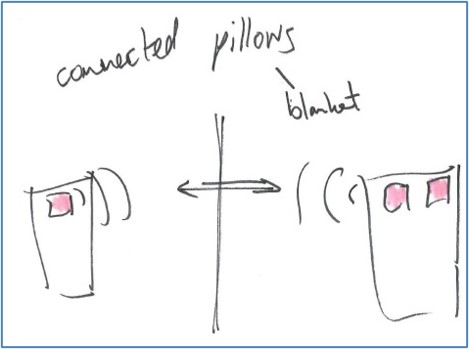 connected pillows
blanket